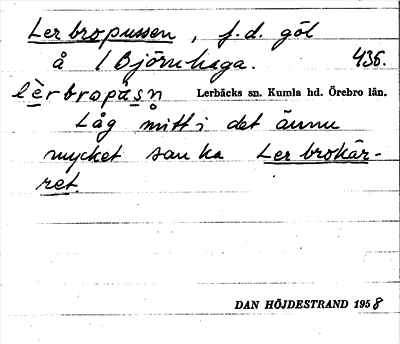 Lerbropussen, f.d. göl
å 1 Björnhaga. 436.
lèrbropåsn Lerbäcks sn. Kumla hd. Örebro län.
Låg mitt i det ännu
mycket sanka Lerbrokär-
ret.
DAN HÖJDESTRAND 1958